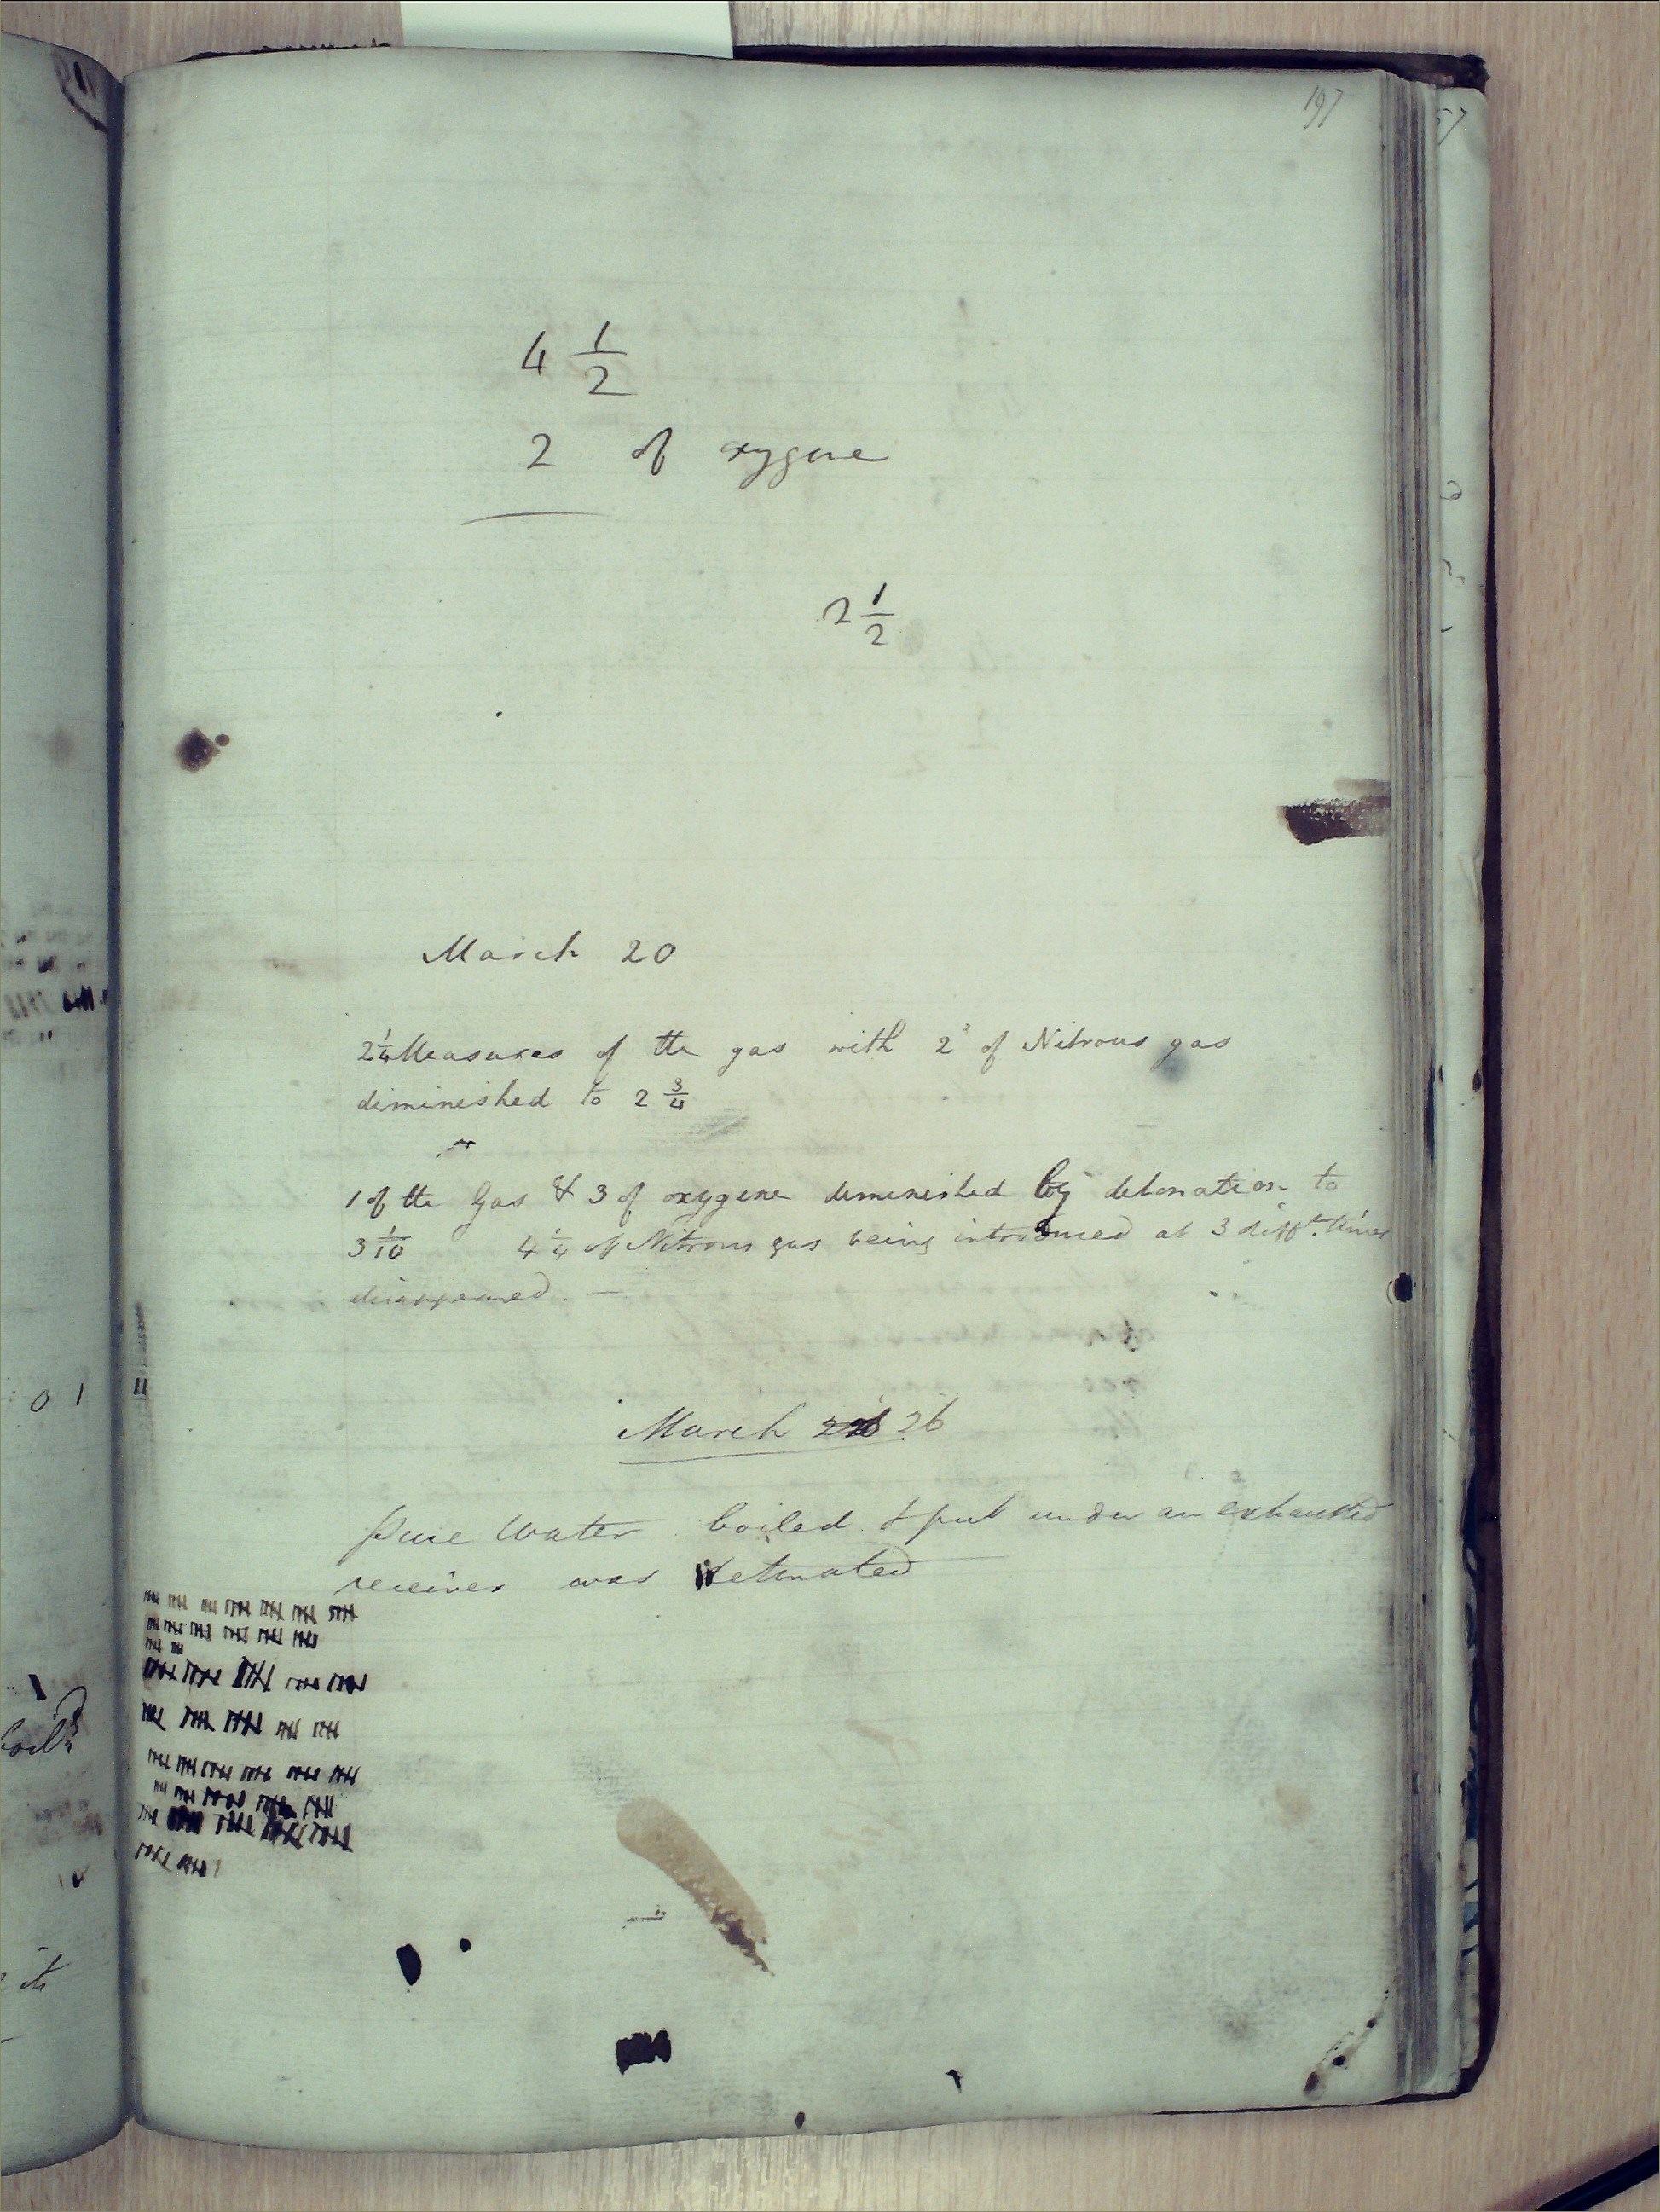 197
4 1/2
2 of oxygene
2 1/2
March 20
2 1/4 Measures of the gas with 2 of Nitrous gas
diminished to 2 3/4
1 of the Gas & 3 of oxygene diminished by detonation to
3 1/10 4 1/4 of Nitrous gas being introduced at 3 difft. times
disappeared. —
March 26
Pure Water boiled & put under an exhausted
receiver was